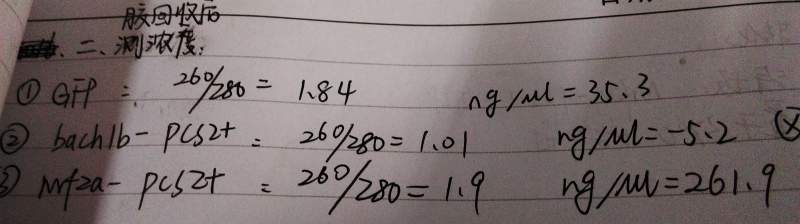 胶回收后
二、测浓度:
① GFP : 260/280 = 1.84 ng/ul = 35.3
② bach1b- pCS2+ : 260/280 = 1.01 ng/ul = -5.2 ⓧ
③ mf2a- pCS2+ : 260/280 = 1.9 ng/ul = 261.9